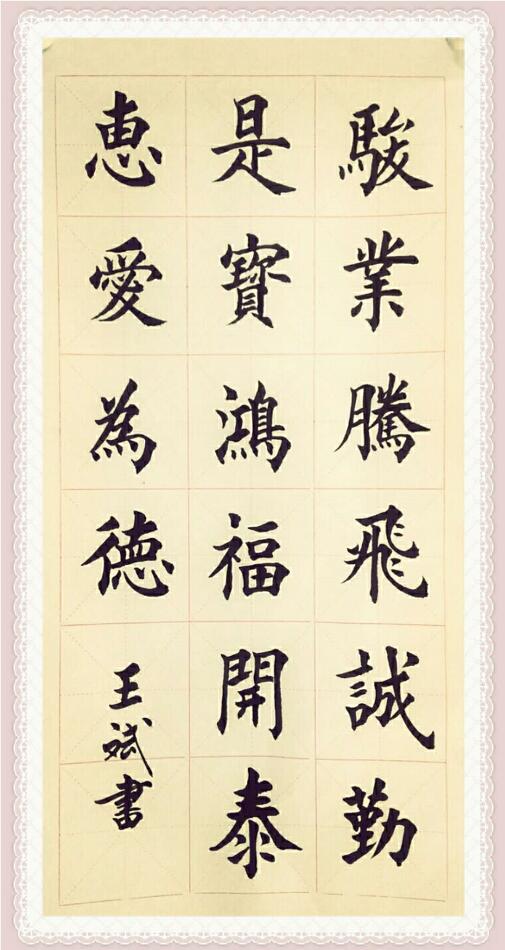 駿業騰飛誠勤
是寶鴻福開泰
恵愛為徳
王斌書